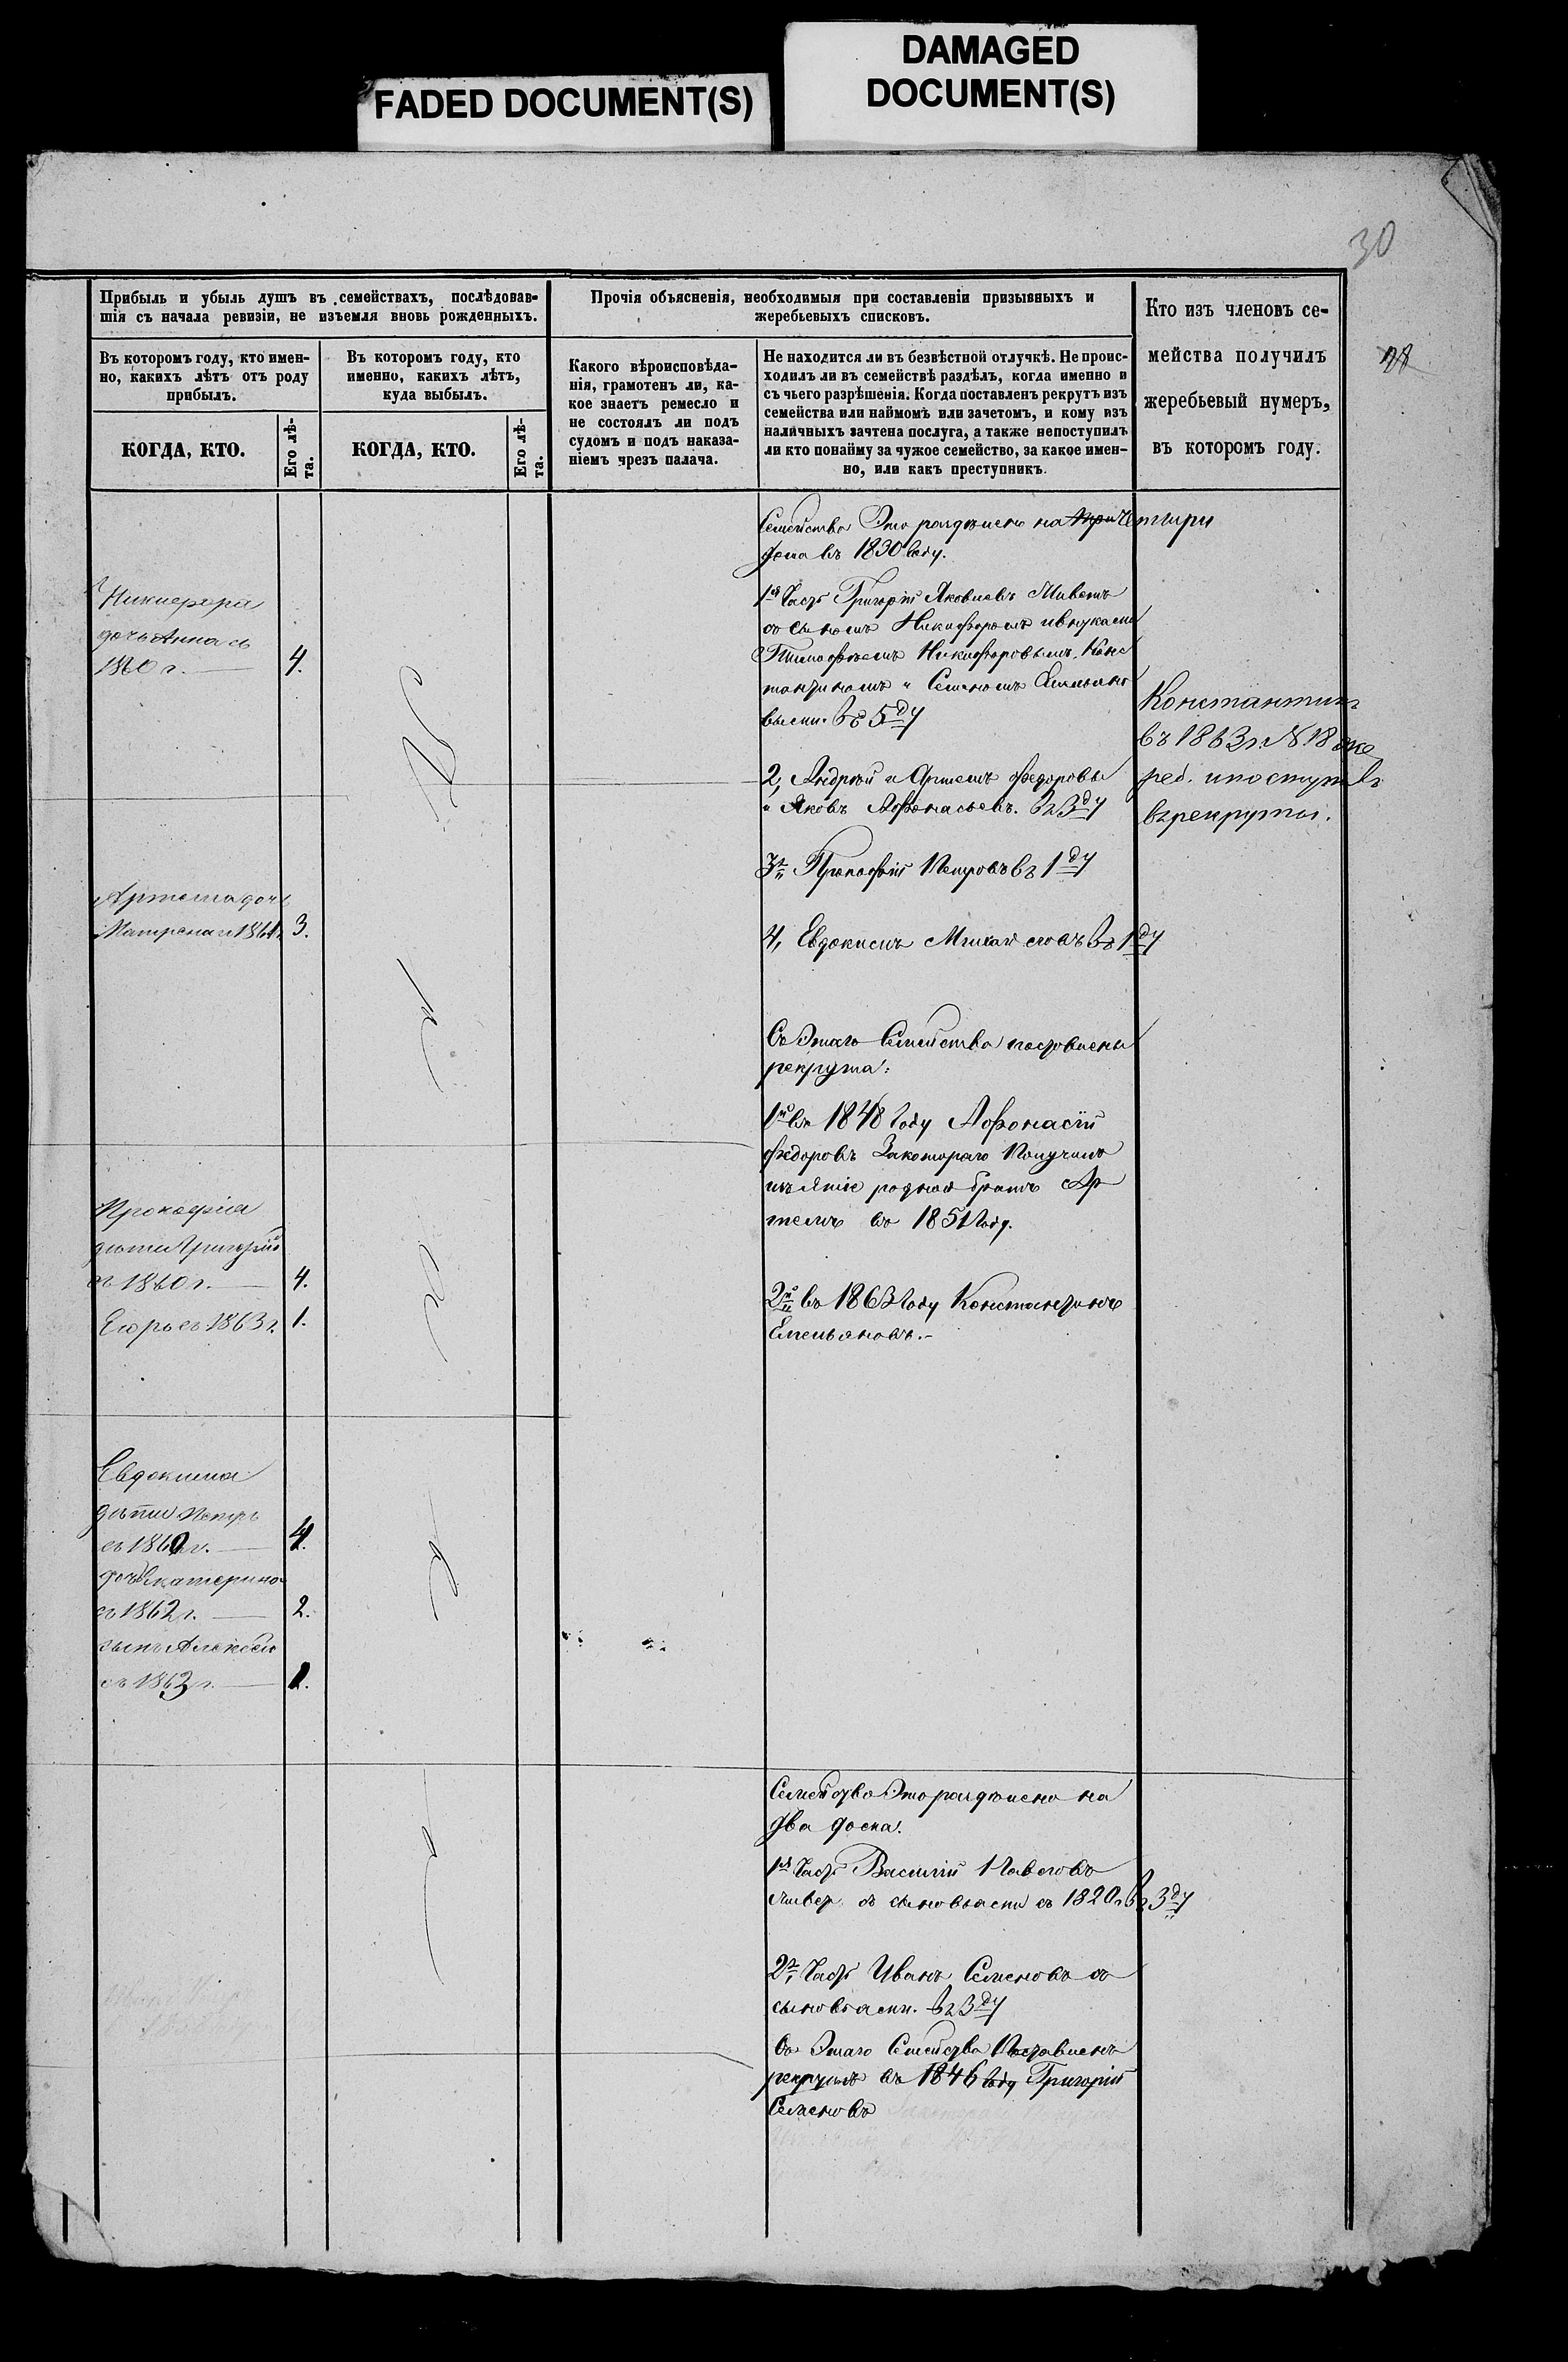 FADED DOCUMENT(S)
DAMAGED
DOCUMENT(S)
30
28
Прибыль и убыль душъ въ семействахъ, послѣдовав-
шія съ начала ревизіи, не изъемля вновь рожденныхъ.
Въ которомъ году, кто имен-
но, какихъ лѣтъ отъ роду
прибылъ.
КОГДА, КТО.
Его лѣ-
та.
Въ которомъ году, кто
именно, какихъ лѣтъ,
куда выбылъ.
КОГДА, КТО.
Его лѣ-
та.
Прочія объясненія, необходимыя при составленіи призывныхъ и
жеребьевыхъ списковъ.
Какого вѣроисповѣда-
нія, грамотенъ ли, ка-
кое знаетъ ремесло и
не состоялъ ли подъ
судомъ и подъ наказа-
ніемъ чрезъ палача.
Не находится ли въ безвѣстной отлучкѣ. Не проис-
ходилъ ли въ семействѣ раздѣлъ, когда именно и
съ чьего разрѣшенія. Когда поставленъ рекрутъ изъ
семейства или наймомъ или зачетомъ, и кому изъ
наличныхъ зачтена послуга, а также непоступилъ
ли кто понайму за чужое семейство, за какое имен-
но, или какъ преступникъ.
Кто изъ членовъ се-
мейства получилъ
жеребьевый нумеръ,
въ которомъ году.
Никифора
дочь Анна съ
1860 г. 4.
Артема дочь
Матрена съ 1861 г. 3.
Прокофія
дѣти Григорій
съ 1860 г. 4.
Егоръ съ 1863 г. 1.
Евдокима
дѣти Петръ
съ 1860 г. 4.
дочь Екатерина
съ 1862 г. 2.
сынъ Алексѣй
съ 1863 г. 1.
Семейство Это раздѣлено на три Четыри
дома въ 1830 Году.
1я Часть Григорій Яковлевъ
съ сыномъ Никифоромъ и внуками
Тимофѣемъ Никифоровымъ, Конс
тантиномъ и Семеномъ Емельяно
выми. въ 5 ду
2, Андрѣй и Артемъ Федоровы
и Яковъ Афонасьевъ. въ 3 ду
3я Прокофій Петровъ въ 1 ду
4, Евдокимъ Михайловъ въ 1 ду
Съ Этаго Семейства поставлены
рекрута:
1й въ 1848 Году Афонасій
Федоровъ Закотораго Получилъ
изъятіе родной братъ Ар
темъ въ 1851 Году.
2й въ 1863 Году Константинъ
Емельяновъ.-
Константинъ
въ 1863 г. № 18 же
реб. и поступилъ
въ рекруты.
Семейство Это раздѣлено на
два дома.
1я Часть Василій Павловъ
съ сыновьями съ 1820 г. въ 3 ду
2я Часть Иванъ Семеновъ съ
сыновьями. въ 3 ду
Съ Этаго Семейства Поставленъ
рекрутъ въ 1846 Году Григорій
Семеновъ